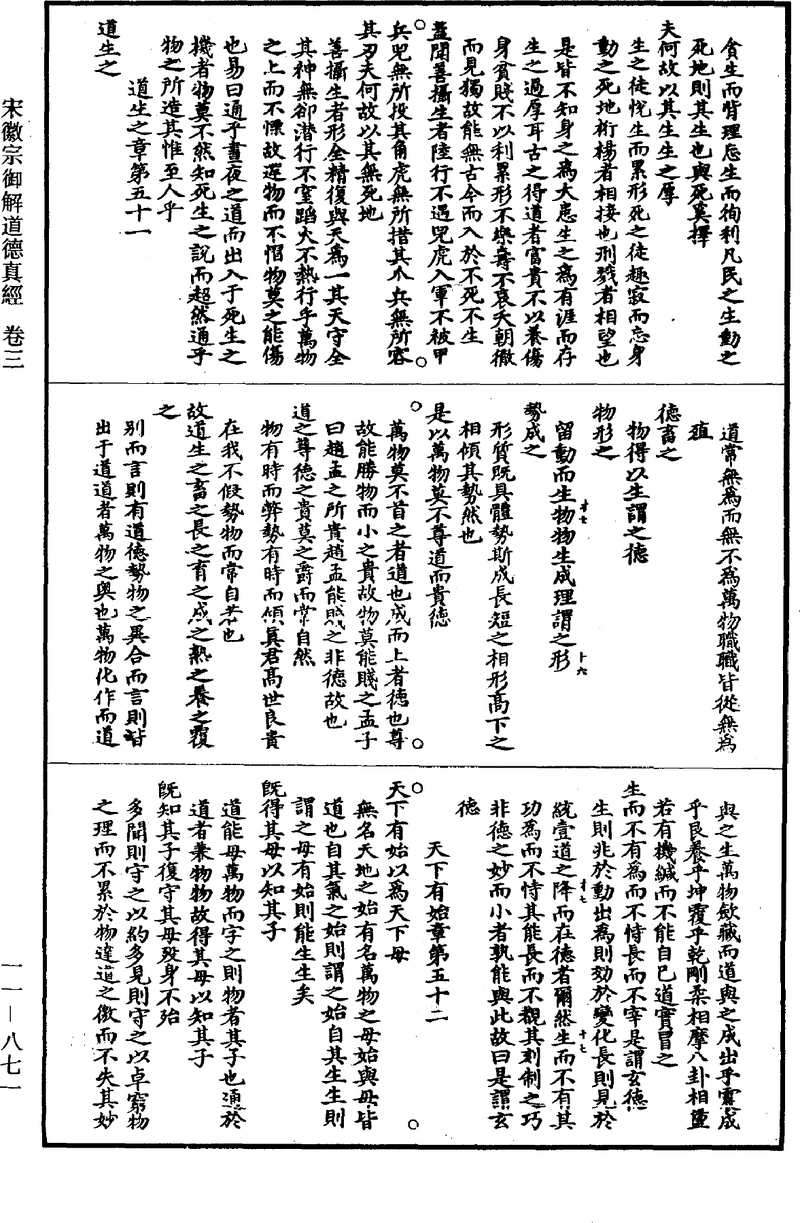 貪生而背理忘生而徇利凡民之生動之
死地則其生也與死奚擇
夫何故以其生生之厚
生之徒悅生而累形死之徒趣寂而忘身
動之死地桁楊者相接也刑戮者相望也
是皆不知身之為大患生之為有涯而存
生之過厚耳古之得道者富貴不以養傷
身貧賤不以利累形不樂壽不哀夭朝徹
而見獨故能無古今而入於不死不生
蓋聞善攝生者陸行不遇兕虎入軍不被甲
兵兕無所投其角虎無所措其爪兵無所容
其刃夫何故以其無死地
善攝生者形全精復與天為一其天守全
其神無卻潛行不窒蹈火不熱行乎萬物
之上而不慄故遌物而不慴物莫之能傷
也易曰通乎晝夜之道而出入于死生之
機者物莫不然知死生之說而超然通乎
物之所造其惟至人乎
道生之章第五十一
道生之
道常無為而無不為萬物職職皆從無為
殖
德畜之
物得以生謂之德
物形之
留動而生物物生成理謂之形
才七
卜六
勢成之
形質既具體勢斯成長短之相形高下之
相傾其勢然也
是以萬物莫不尊道而貴德
萬物莫不首之者道也成而上者德也尊
故能勝物而小之貴故物莫能賤之孟子
曰趙孟之所貴趙孟能賤之非德故也
道之尊德之貴莫之爵而常自然
物有時而弊勢有時而傾真君高世良貴
在我不假勢物而常自若也
故道生之畜之長之育之成之熟之養之覆
之
別而言則有道德勢物之異合而言則皆
出于道道者萬物之奧也萬物化作而道
與之生萬物斂藏而道與之成出乎震成
乎艮養乎坤覆乎乾剛柔相摩八卦相盪
若有機緘而不能自已道實冒之
生而不有為而不恃長而不宰是謂玄德
生則兆於動出為則効於變化長則見於
統壹道之降而在德者爾然生而不有其
才七
十七
功為而不恃其能長而不覩其刻制之巧
非德之妙而小者孰能與此故曰是謂玄
德
天下有始章第五十二
天下有始以為天下母
無名天地之始有名萬物之母始與母皆
道也自其氣之始則謂之始自其生生則
謂之母有始則能生生矣
既得其母以知其子
道能母萬物而字之則物者其子也通於
道者兼物物故得其母以知其子
既知其子復守其母歿身不殆
多聞則守之以約多見則守之以卓窮物
之理而不累於物達道之徼而不失其妙
宋徽宗御解道德真經 卷三
一一—八七一